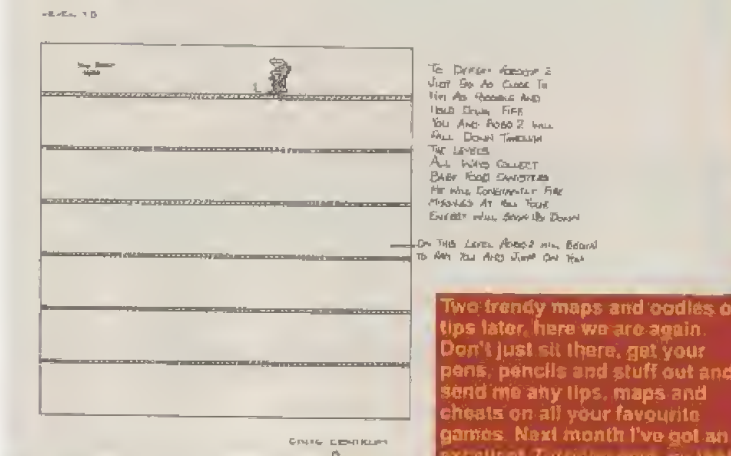 LEVEL 10
TO DEFEAT ROBOCOP 2
JUST GO AS CLOSE TO
HIM AS POSSIBLE AND
HOLD DOWN FIRE
YOU AND ROBO 2 WILL
FALL DOWN THROUGH
THE LEVELS
ALL WAYS COLLECT
BABY FOOD CANISTERS
HE WILL CONSTANTLY FIRE
MISSILES AT YOU YOUR
ENERGY WILL SOON GO DOWN
ON THIS LEVEL ROBO 2 WILL BEGIN
TO RAM YOU AND JUMP ON YOU
Two trendy maps and oodles o
tips later, here we are again.
Don't just sit there, get your
pens, pencils and stuff out and
send me any tips, maps and
cheats on all your favourite
games. Next month I've got an